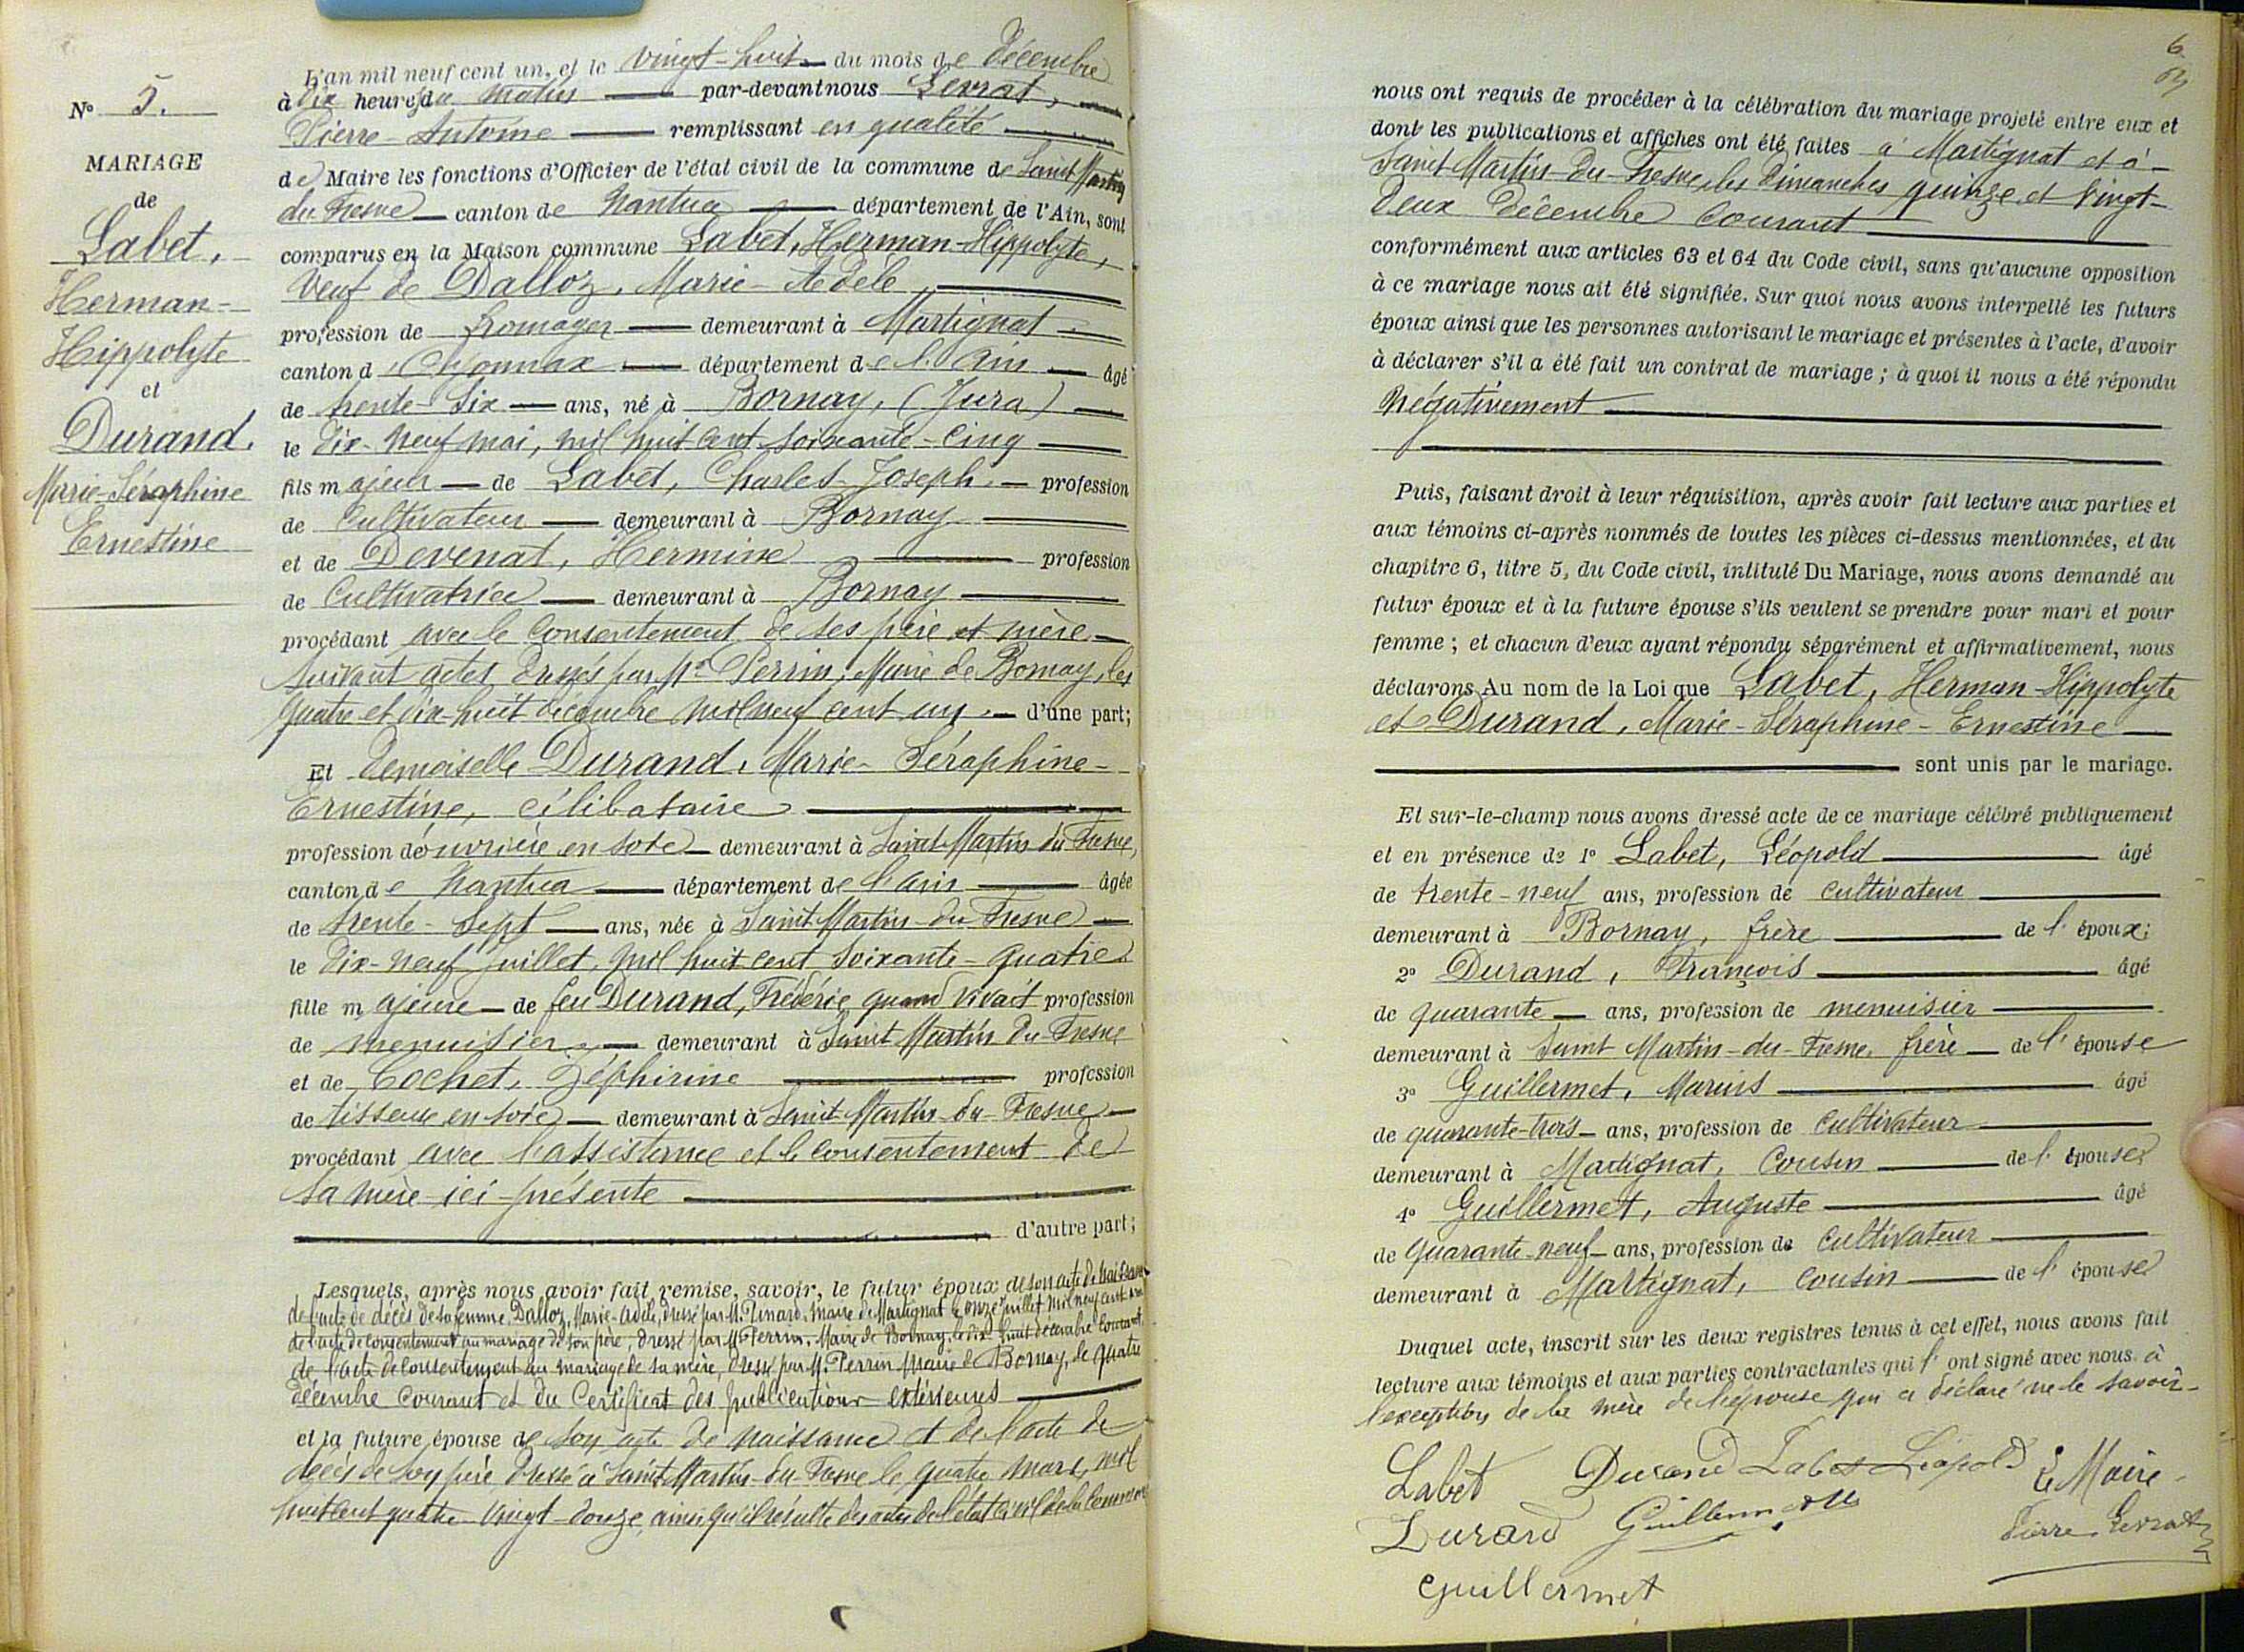 N° 5.
MARIAGE
de
Labet,
Herman-
Hippolyte
et
Durand,
Marie-Séraphine
Ernestine
L'an mil neuf cent un, et le vingt-huit du mois de Décembre
à dix heures du matin par-devant nous Serrat,
Pierre-Antoine remplissant en qualité
de Maire les fonctions d'Officier de l'état civil de la commune de Saint Martin
du Fresne canton de Nantua département de l'Ain, sont
comparus en la Maison commune Labet, Herman-Hippolyte,
Veuf de Dalloz, Marie-Adèle,
profession de fromager demeurant à Martignat
canton d'Oyonnax département de l'Ain âgé
de trente-six ans, né à Bornay, (Jura)
le dix-neuf mai, mil huit cent soixante-cinq
fils majeur de Labet, Charles-Joseph, profession
de Cultivateur demeurant à Bornay
et de Devenat, Hermine profession
de Cultivatrice demeurant à Bornay
procédant avec le consentement de ses père et mère
suivant actes dressés par Mr Perrin, Maire de Bornay, les
quatre et dix-huit décembre mil neuf cent un, d'une part;
Et demoiselle Durand, Marie-Séraphine-
Ernestine, célibataire
profession d'ouvrière en soie demeurant à Saint-Martin du Fresne,
canton de Nantua département de l'Ain âgée
de trente-sept ans, née à Saint-Martin-du-Fresne
le dix-neuf juillet, mil huit cent soixante-quatre
fille majeure de feu Durand, Frédéric, quand vivait profession
de menuisier, demeurant à Saint Martin du-Fresne
et de Cochet, Zéphirine profession
de tisseuse en soie demeurant à Saint-Martin-du-Fresne
procédant avec l'assistance et le consentement de
sa mère ici-présente
d'autre part;
Lesquels, après nous avoir fait remise, savoir, le futur époux de son acte de naissance
de l'acte de décès de sa femme, Dalloz, Marie-Adèle, dressé par M. Pinard, maire de Martignat le onze juillet mil neuf cent un
de l'acte de consentement au mariage de son père, dressé par M. Perrin, Maire de Bornay, le dix-huit décembre courant,
de l'acte de consentement au mariage de sa mère, dressé par M. Perrin maire de Bornay, le quatre
décembre courant et du Certificat des publications extérieures
et la future épouse de son acte de naissance et de l'acte de
décès de son père dressé à Saint Martin-du-Fresne le quatre mars, mil
huit cent quatre-vingt-douze, ainsi qu'il résulte des actes de l'état civil de la Commune
6
nous ont requis de procéder à la célébration du mariage projeté entre eux et
dont les publications et affiches ont été faites à Martignat et à
Saint Martin-du-Fresne, les Dimanches quinze et vingt-
deux Décembre Courant
conformément aux articles 63 et 64 du Code civil, sans qu'aucune opposition
à ce mariage nous ait été signifiée. Sur quoi nous avons interpellé les futurs
époux ainsi que les personnes autorisant le mariage et présentes à l'acte, d'avoir
à déclarer s'il a été fait un contrat de mariage ; à quoi il nous a été répondu
Négativement
Puis, faisant droit à leur réquisition, après avoir fait lecture aux parties et
aux témoins ci-après nommés de toutes les pièces ci-dessus mentionnées, et du
chapitre 6, titre 5, du Code civil, intitulé Du Mariage, nous avons demandé au
futur époux et à la future épouse s'ils veulent se prendre pour mari et pour
femme ; et chacun d'eux ayant répondu séparément et affirmativement, nous
déclarons Au nom de la Loi que Labet, Herman-Hippolyte
et Durand, Marie-Séraphine-Ernestine
sont unis par le mariage.
Et sur-le-champ nous avons dressé acte de ce mariage célébré publiquement
et en présence de 1° Labet, Léopold âgé
de trente-neuf ans, profession de cultivateur
demeurant à Bornay, frère de l'époux;
2° Durand, François âgé
de quarante ans, profession de menuisier
demeurant à Saint Martin-du-Fresne, frère de l'épouse
3° Guillermet, Marius âgé
de quarante-trois ans, profession de Cultivateur
demeurant à Martignat, Cousin de l'épouse
4° Guillermet, Auguste âgé
de quarante-neuf ans, profession de Cultivateur
demeurant à Martignat, cousin de l'épouse
Duquel acte, inscrit sur les deux registres tenus à cet effet, nous avons fait
lecture aux témoins et aux parties contractantes qui l'ont signé avec nous à
l'exception de la mère de l'épouse qui a déclaré ne le savoir
Labet Durand Labet Léopold Le Maire
Durand Guillermet Pierre Serrat
Guillermet